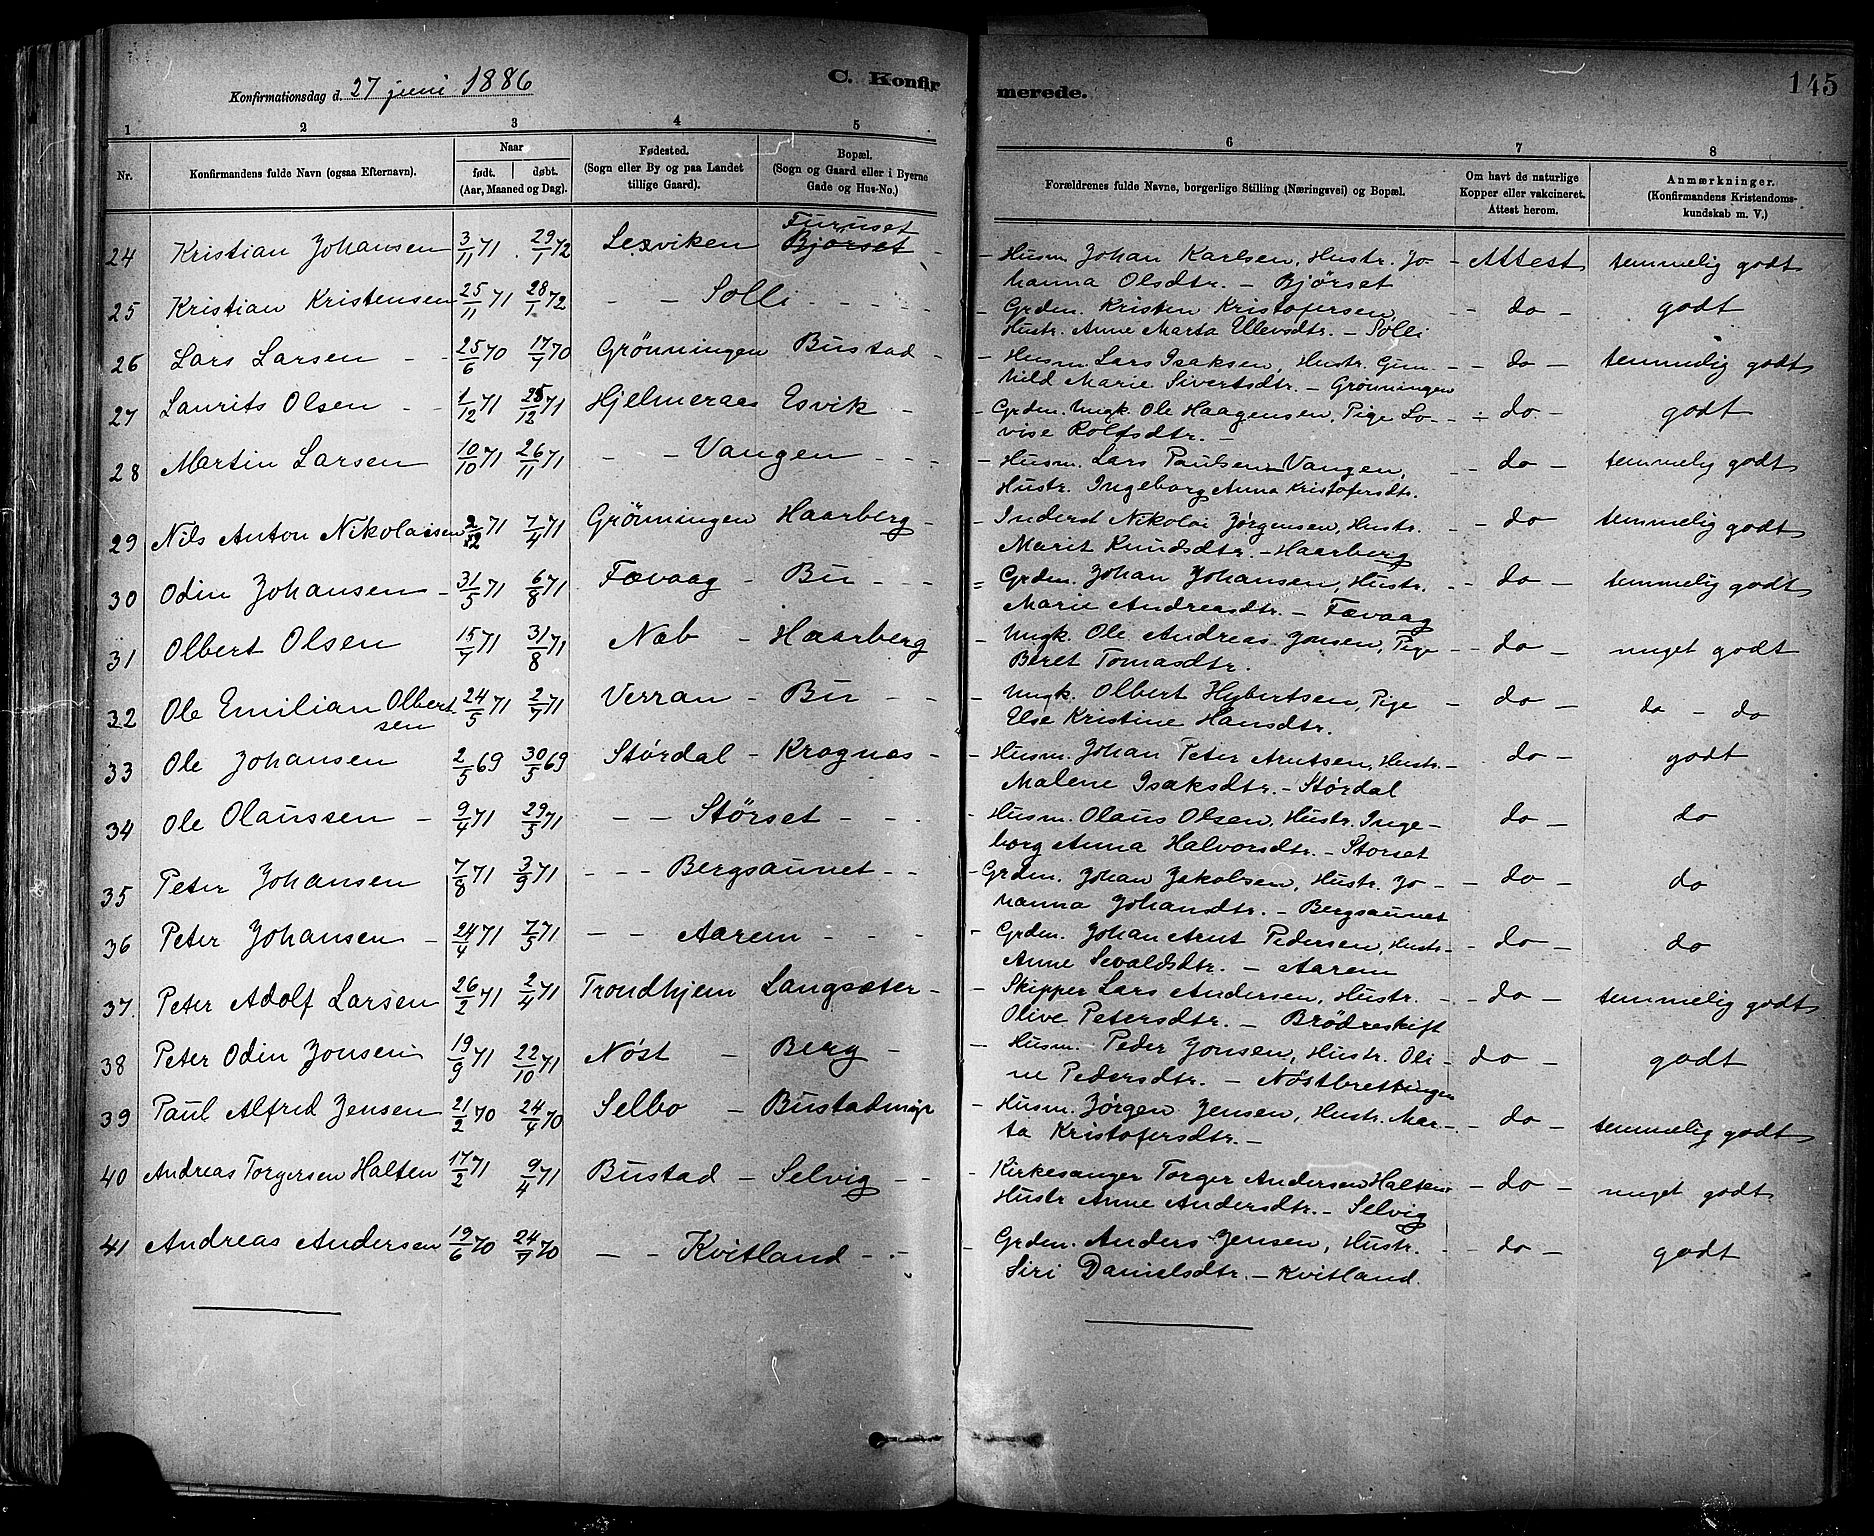 Konfirmationsdag d. 27 juni 1886
C. Konfirmerede.
145
1 2 3 4 5 6 7 8
Nr. Konfirmandens fulde Navn (ogsaa Efternavn). Naar født. døbt. (Aar, Maaned og Dag). Fødested. (Sogn eller By og paa Landet tillige Gaard). Bopæl. (Sogn og Gaard eller i Byerne Gade og Hus-No.) Forældrenes fulde Navne, borgerlige Stilling (Næringsvei) og Bopæl. Om havt de naturlige Kopper eller vakcineret. Attest herom. Anmærkninger. (Konfirmandens Kristendomskundskab m. V.)
24 Kristian Johansen 3/11 71 29/1 72 Lexviken Furuset Bjørset - Husm. Johan Karlsen, Hustr. Jo- - Attest temmelig godt
hanna Olsdtr. - Bjørset
25 Kristian Kristensen 25/11 71 28/1 72 - - Solli - - - - Grden. Kristen Kristofersen, -- do - godt
Hustr. Anne Marta Ellevsdtr. - Solli
26 Lars Larsen - - 25/6 70 17/7 70 Grönningen Bustad - - Husm. Lars Isaksen, Hustr. Gun- - do - temmelig godt
hild Marie Sivertsdtr. - Grönningen
27 Laurits Olsen - - 1/12 71 25/12 71 Hjelmeraas Esvik - - Grden. Ungk. Ole Haagensen, Pige Lo- - do - godt
vise Rolfsdtr. -
28 Martin Larsen 10/10 71 26/11 71 - - Vangen - - - - Husm. Lars Paulsen Vangen, -- do - temmelig godt
Hustr. Ingeborg Anna Kristofersdtr.
29 Nils Anton Nikolaisen 2/2 71 7/4 71 Grönningen Haarberg - - Inderst Nikolai Jørgensen, Hustr. - do - temmelig godt
Marit Knudsdtr. - Haarberg
30 Odin Johansen - 31/5 71 6/8 71 Fævaag - Bu - - - Grden. Johan Johansen, Hustr. -- do - temmelig godt
Marie Andreasdtr. - Fævaag
31 Olbert Olsen 15/7 71 31/8 71 Næb - Haarberg - Ungk. Ole Andreas Jonsen, Pige -- do - meget godt
Beret Tomasdtr.
32 Ole Emilian Olbertsen 24/5 71 2/7 71 Verran - Bu - - - Ungk. Olbert Hybertsen, Pige - do - do - do
Else Kristine Hansdtr.
33 Ole Johansen 2/5 69 30/5 69 Stördal - Krognes - - Husm. Johan Peter Arntsen, Hustr. - do - godt
Malene Isaksdtr. - Stördal
34 Ole Olaussen - 9/4 71 29/5 71 - - Størset - - - - Husm. Olaus Olsen, Hustr. Inge- do - do
borg Anna Halvorsdtr. - Størset
35 Peter Johansen 7/8 71 3/9 71 - - - Bergsaunet - - - Grden. Johan Jakobsen, Hustr. Jo- - do - do
hanna Johansdtr. - Bergsaunet
36 Peter Johansen - 24/4 71 7/5 71 - - Aarem - - - - Grden. Johan Arnt Pedersen, Hustr. - do - do
Anne Sevaldsdtr. - Aarem
37 Peter Adolf Larsen 26/2 71 2/4 71 Trondhjem Langsæter - - Skipper Lars Andersen, Hustr. - - do - temmelig godt
Olive Petersdtr. - Brödreskift
38 Peter Odin Jonsen 19/9 71 22/10 71 Nöst - Berg - - Husm. Peder Jonsen, Hustr. Oli- do - godt
ne Pedersdtr. - Nöstbrettingen
39 Paul Alfred Jensen 21/2 70 24/4 70 Selbo - Bustadmyr - Husm. Jørgen Jensen, Hustr. Mar- - do - temmelig godt
ta Kristofersdtr. -
40 Andreas Torgersen Halten 17/2 71 9/4 71 Bustad - Selvig - - - Kirkesanger Torger Andersen Halten - do - meget godt
Hustr Anne Andersdtr. - Selvig
41 Andreas Andersen 19/6 70 24/7 70 - - Kvitland - - - Grden. Anders Jensen, Hustr. - do - godt
Siri Danielsdtr. - Kvitland.